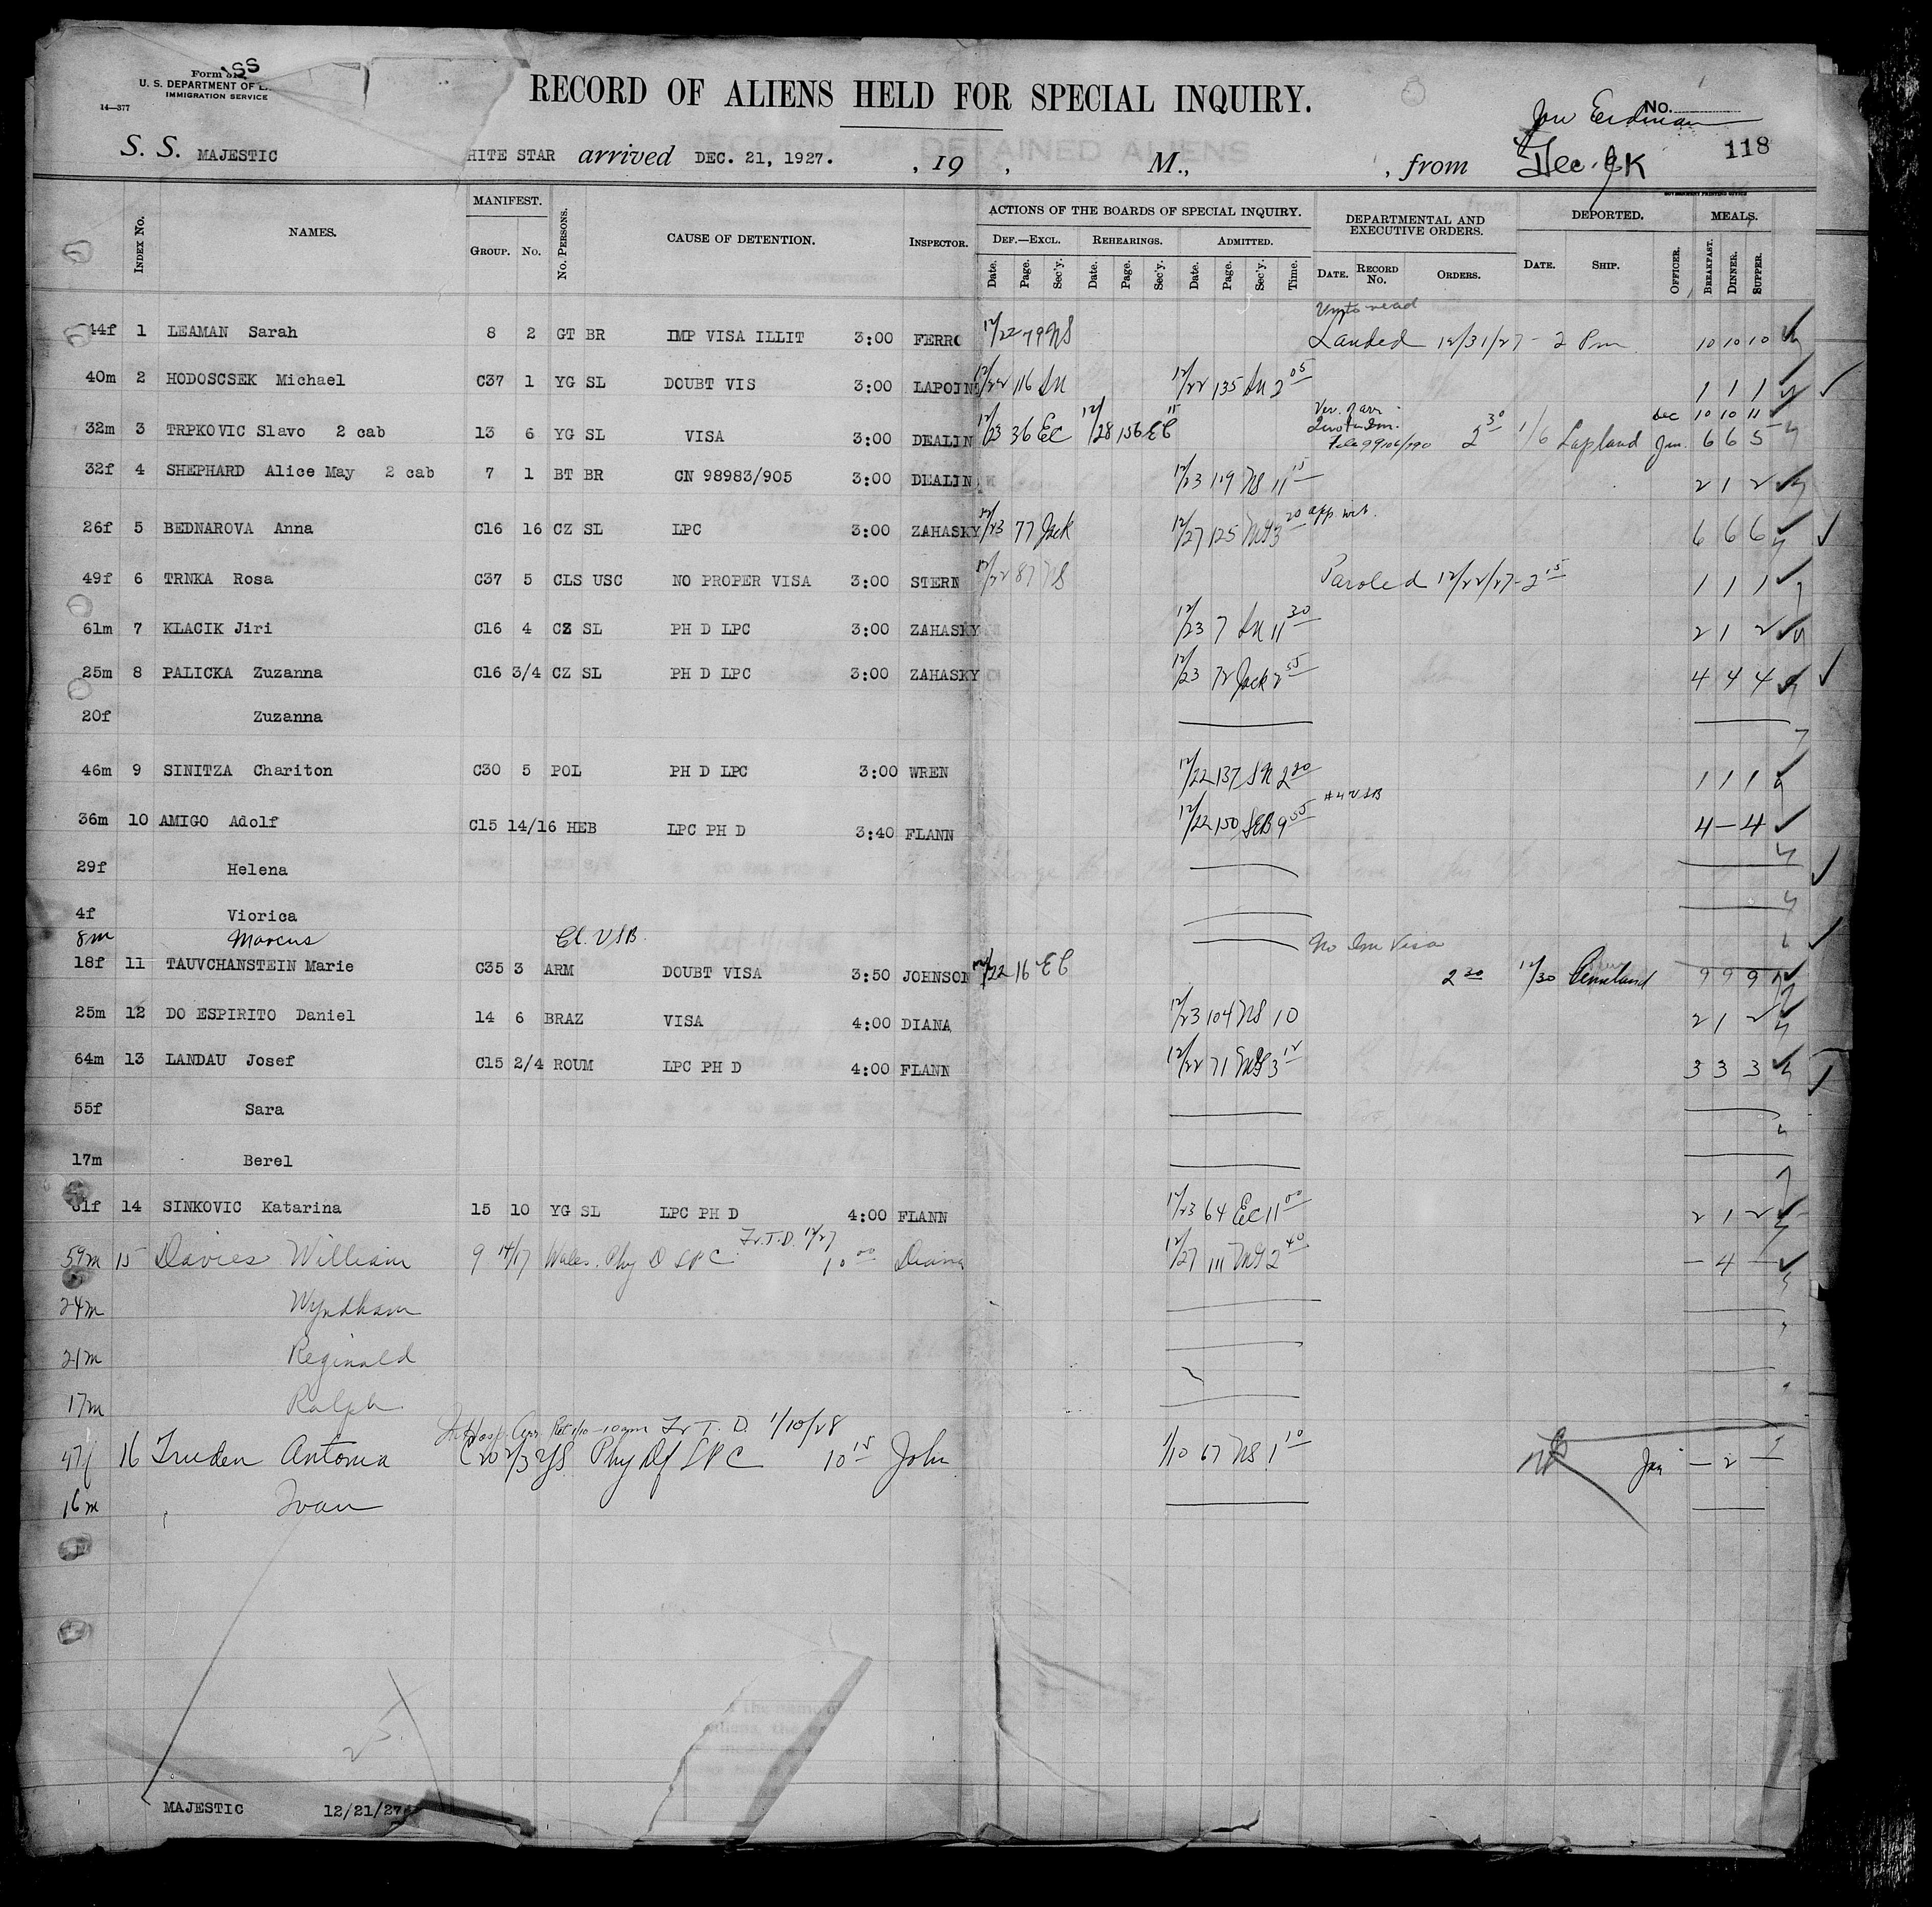 Form
U. S. DEPARTMENT OF
IMMIGRATION SERVICE
14—377
RECORD OF ALIENS HELD FOR SPECIAL INQUIRY.
No.
118
S. S. MAJESTIC HITE STAR arrived DEC. 21, 1927. , 19 , M., , from
GOVERNMENT PRINTING OFFICE
INDEX No. NAMES. MANIFEST. GROUP. No. No. PERSONS. CAUSE OF DETENTION. INSPECTOR. ACTIONS OF THE BOARDS OF SPECIAL INQUIRY. DEF.—EXCL. Date. Page. Sec'y. REHEARINGS. Date. Page. Sec'y. ADMITTED. Date. Page. Sec'y. Time. DEPARTMENTAL AND EXECUTIVE ORDERS. DATE. RECORD No. ORDERS. DEPORTED. DATE. SHIP. OFFICER. MEALS. BREAKFAST. DINNER. SUPPER.
44f 1 LEAMAN Sarah 8 2 GT BR IMP VISA ILLIT 3:00 FERRO 12/22 79 NS Landed 12/31/27 - 2 Pm 10 10 10
40m 2 HODOSCSEK Michael C37 1 YG SL DOUBT VIS 3:00 LAPOIN 12/22 116 12/22 135 2 05 1 1 1
Dec 10 10 11
32m 3 TRPKOVIC Slavo 2 cab 13 6 YG SL VISA 3:00 DEALIN 12/23 36 EC 12/28 156 EC 2 30 1/6 Lapland Jan. 6 6 5
32f 4 SHEPHARD Alice May 2 cab 7 1 BT BR CN 98983/905 3:00 DEALIN 12/23 119 NS 11 15 2 1 2
26f 5 BEDNAROVA Anna C16 16 CZ SL LPC 3:00 ZAHASKY 12/23 77 Jack 12/27 125 3 20 6 6 6
49f 6 TRNKA Rosa C37 5 CLS USC NO PROPER VISA 3:00 STERN 12/22 87 NS Paroled 12/22/27 - 2 15 1 1 1
61m 7 KLACIK Jiri C16 4 CZ SL PH D LPC 3:00 ZAHASKY 12/23 7 11 30 2 1 2
25m 8 PALICKA Zuzanna C16 3/4 CZ SL PH D LPC 3:00 ZAHASKY 12/23 72 Jack 2 55 4 4 4
20f Zuzanna
46m 9 SINITZA Chariton C30 5 POL PH D LPC 3:00 WREN 12/22 137 2 20 1 1 1
36m 10 AMIGO Adolf C15 14/16 HEB LPC PH D 3:40 FLANN 12/22 150 SEB 9 55 4 — 4
29f Helena
4f Viorica
8m Marcus Cl. USB.
No Im Visa
18f 11 TAUVCHANSTEIN Marie C35 3 ARM DOUBT VISA 3:50 JOHNSON 12/22 16 EC 2 30 12/30 9 9 9
25m 12 DO ESPIRITO Daniel 14 6 BRAZ VISA 4:00 DIANA 12/23 104 NS 10 2 1 2
64m 13 LANDAU Josef C15 2/4 ROUM LPC PH D 4:00 FLANN 12/22 71 3 12 3 3 3
55f Sara
17m Berel
31f 14 SINKOVIC Katarina 15 10 YG SL LPC PH D 4:00 FLANN 12/23 64 EC 11 00 2 1 2
Fr. T. D. 12/27
59m 15 Davies William 9 14/17 Wales. Phy D LPC 10 00 Diana 12/27 111 2 40 — 4 —
24m Wyndham
21m Reginald
17m Ralph
Fr T. D. 1/10/28
47f 16 Truden Antonia C20 2/3 YS Phy Df LPC 10 15 John 1/10 67 NS 1 10 Jan — 2 —
16m Ivan
MAJESTIC 12/21/27